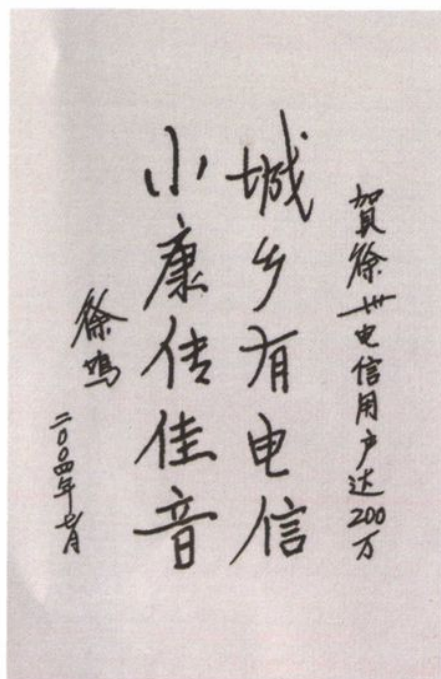 賀徐州电信用户达200万
城乡有电信
小康传佳音
徐鸣
二〇〇四年七月